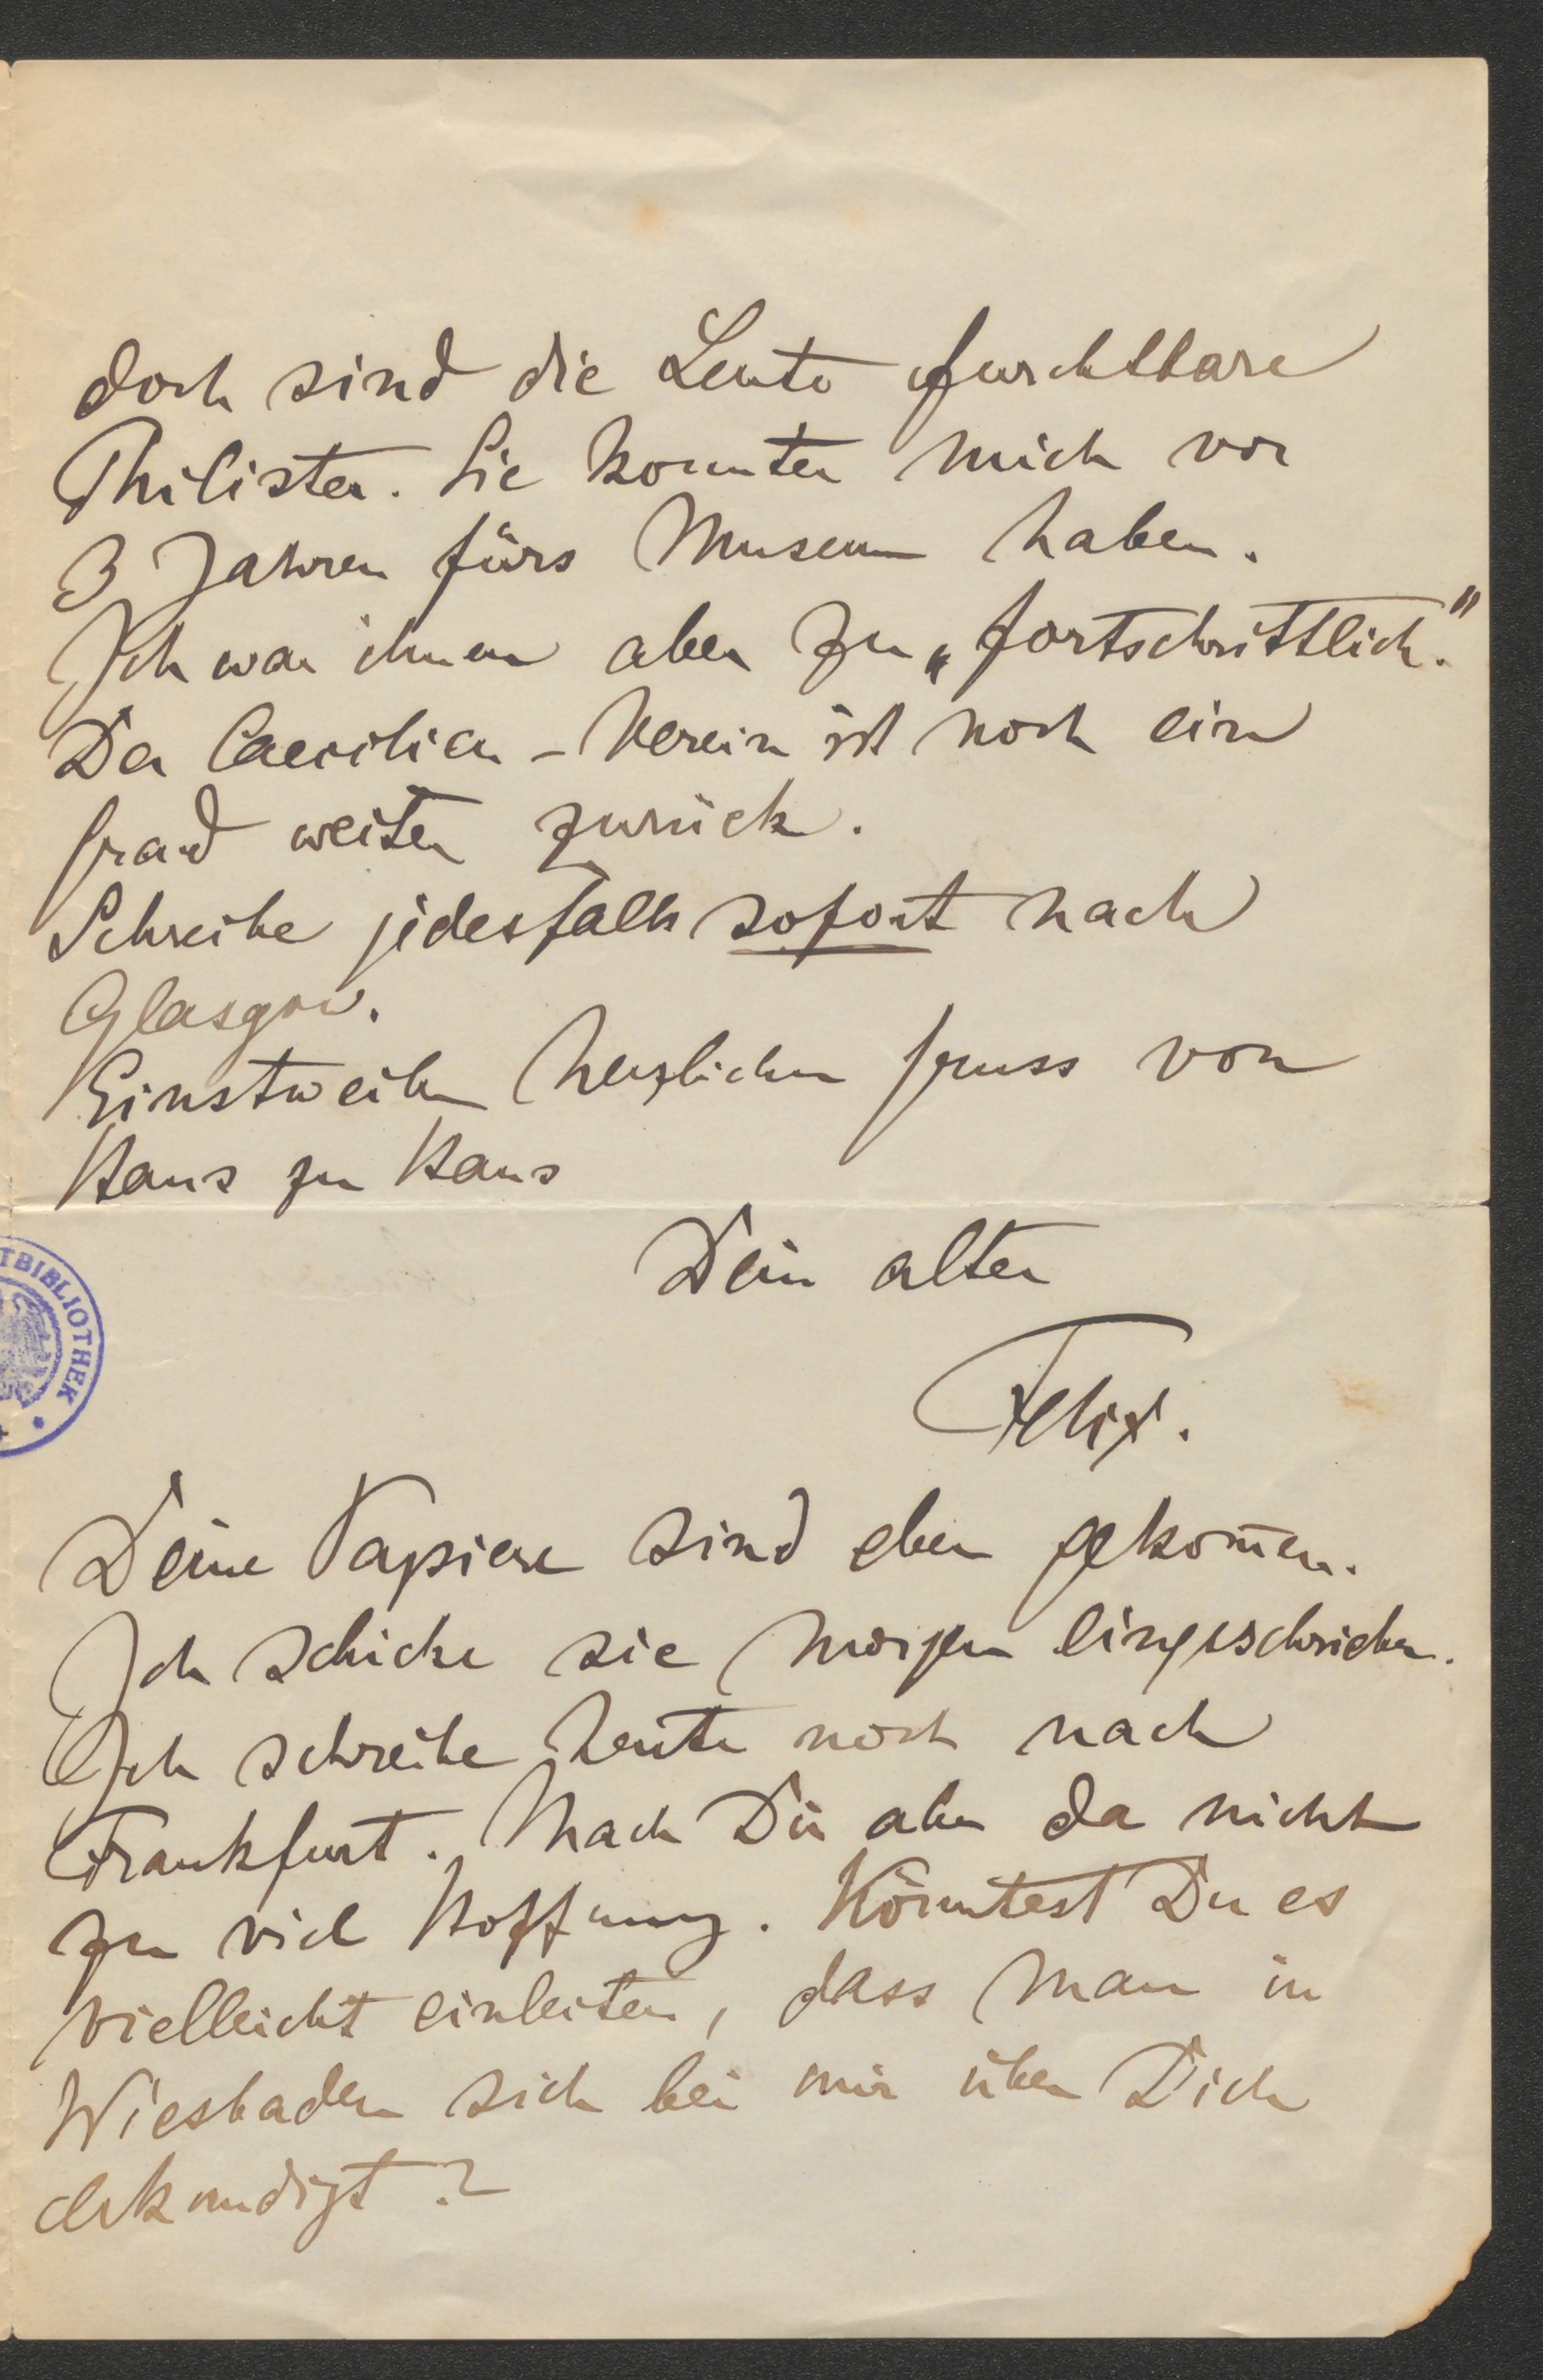 doch sind die Leute furchtbare
Philister. Sie konnten mich vor
3 Jahren fürs Museum haben.
Ich war ihnen aber zu „fortschrittlich."
Der Caecilien-Verein ist noch ein
Grad weiter zurück.
Schreibe jedesfalls sofort nach
Glasgow.
Einstweilen herzlichen Gruss von
Haus zu Haus
Dein alter
Felix.
TBIBLIOTHEK
Deine Papiere sind eben gekom̄en.
Ich schicke sie morgen eingeschrieben.
Ich schreibe heute noch nach
Frankfurt. Mach Dir aber da nicht
zu viel Hoffnung. Könntest Du es
vielleicht einleiten, dass man in
Wiesbaden sich bei mir über Dich
erkundigt?